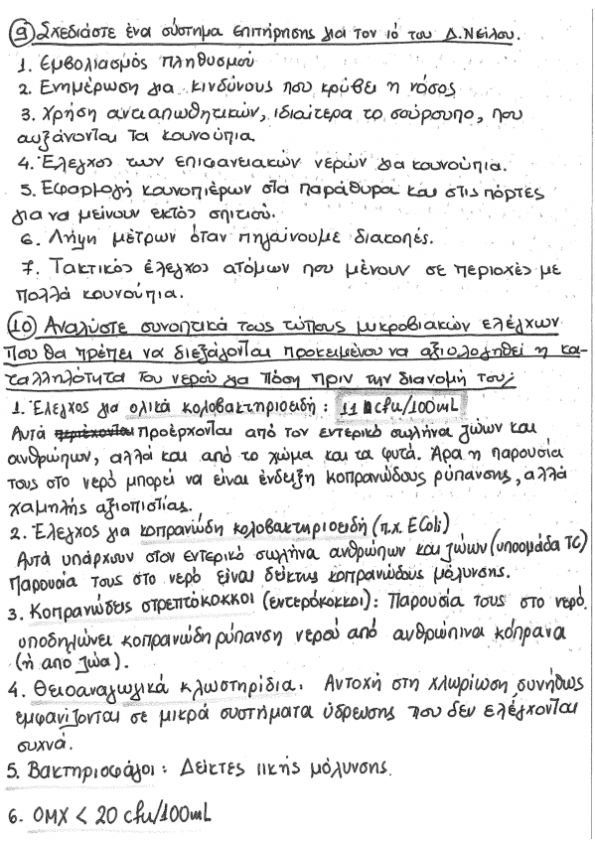 ⑨ Σχεδιάστε ένα σύστημα επιτήρησης για τον ιό του Δ.Νείλου.
1. Εμβολιασμός πληθυσμού
2. Ενημέρωση για κινδύνους που κρύβει η νόσος
3. Χρήση αντιαπωθητικών, ιδιαίτερα το σούρουπο, που
αυξάνονται τα κουνούπια
4. Έλεγχος των επιφανειακών νερών για κουνούπια.
5. Εφαρμογή κουνοπιέρων στα παράθυρα και στις πόρτες
για να μείνουν εκτός σπιτιού.
6. Λήψη μέτρων όταν πηγαίνουμε διακοπές.
7. Τακτικός έλεγχος ατόμων που μένουν σε περιοχές με
πολλά κουνούπια.
⑩ Αναλύστε συνοπτικά τους τύπους μικροβιακών ελέγχων
που θα πρέπει να διεξάγονται προκειμένου να αξιολογηθεί η κα-
ταλληλότητα του νερού για πόση πριν την διανομή του;
1. Έλεγχος για ολικά κολοβακτηριοειδή : 11 cfu/100mL
Αυτά περιέχονται προέρχονται από τον εντερικό σωλήνα ζώων και
ανθρώπων, αλλά και από το χώμα και τα φυτά. Άρα η παρουσία
τους στο νερό μπορεί να είναι ένδειξη κοπρανώδους ρύπανσης, αλλά
χαμηλής αξιοπιστίας.
2. Έλεγχος για κοπρανώδη κολοβακτηριοειδή (π.χ. EColi)
Αυτά υπάρχουν στον εντερικό σωλήνα ανθρώπων και ζώων (υποομάδα TC)
Παρουσία τους στο νερό είναι δείκτης κοπρανώδους μόλυνσης.
3. Κοπρανώδεις στρεπτόκοκκοι (εντερόκοκκοι): Παρουσία τους στο νερό
υποδηλώνει κοπρανώδη ρύπανση νερού από ανθρώπινα κόπρανα
(ή απο ζώα).
4. Θειοαναγωγικά κλωστηρίδια. Αντοχή στη χλωρίωση συνήθως
εμφανίζονται σε μικρά συστήματα ύδρευσης που δεν ελέγχονται
συχνά.
5. Βακτηριοφάγοι: Δείκτες ιικής μόλυνσης.
6. ΟΜΧ < 20 cfu/100mL